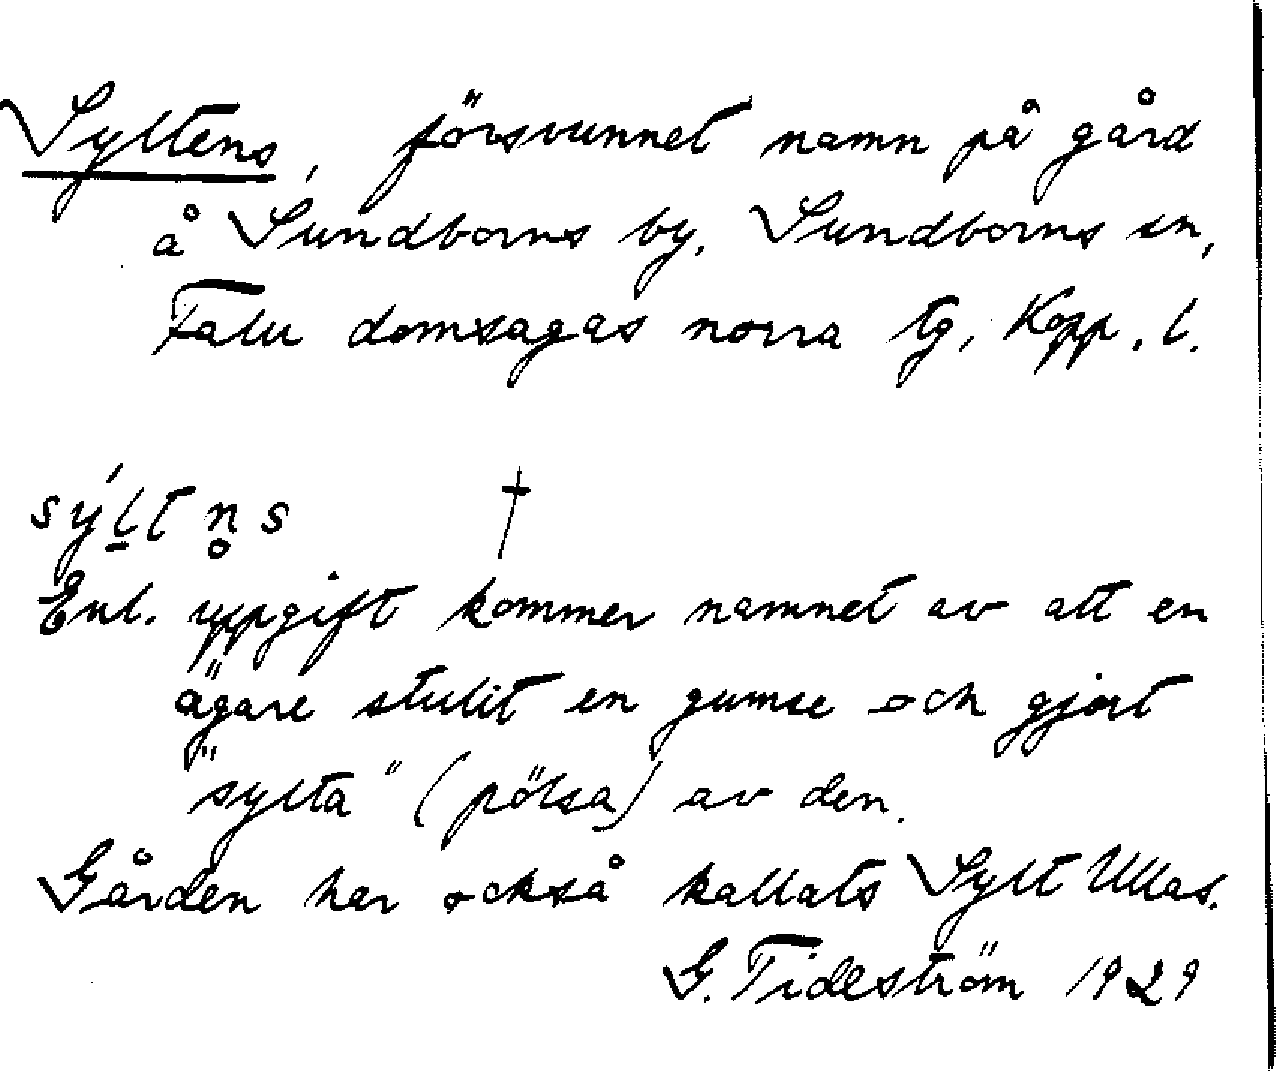 Syltens, försvunnet namn på gård
å Sundborns by, Sundborns sn,
Falu domsagas norra tg, Kopp. l.
sýl̠tn̥s †
Enl. uppgift kommer namnet av att en
ägare stulit en gumse och gjort
"sylta" (pölsa) av den.
Gården har också kallats Sylt Ullas.
G. Tideström 1929